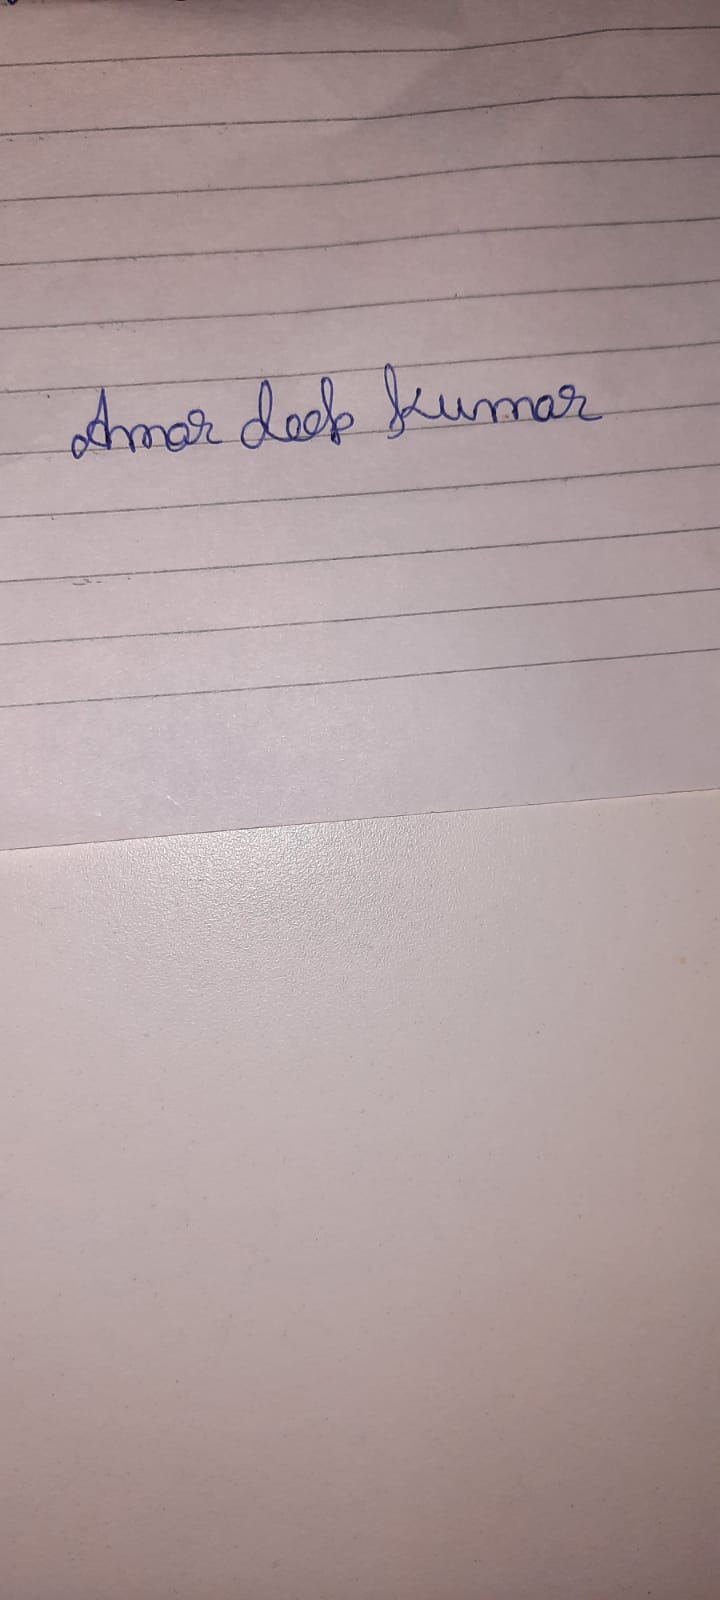 Amar deep kumar